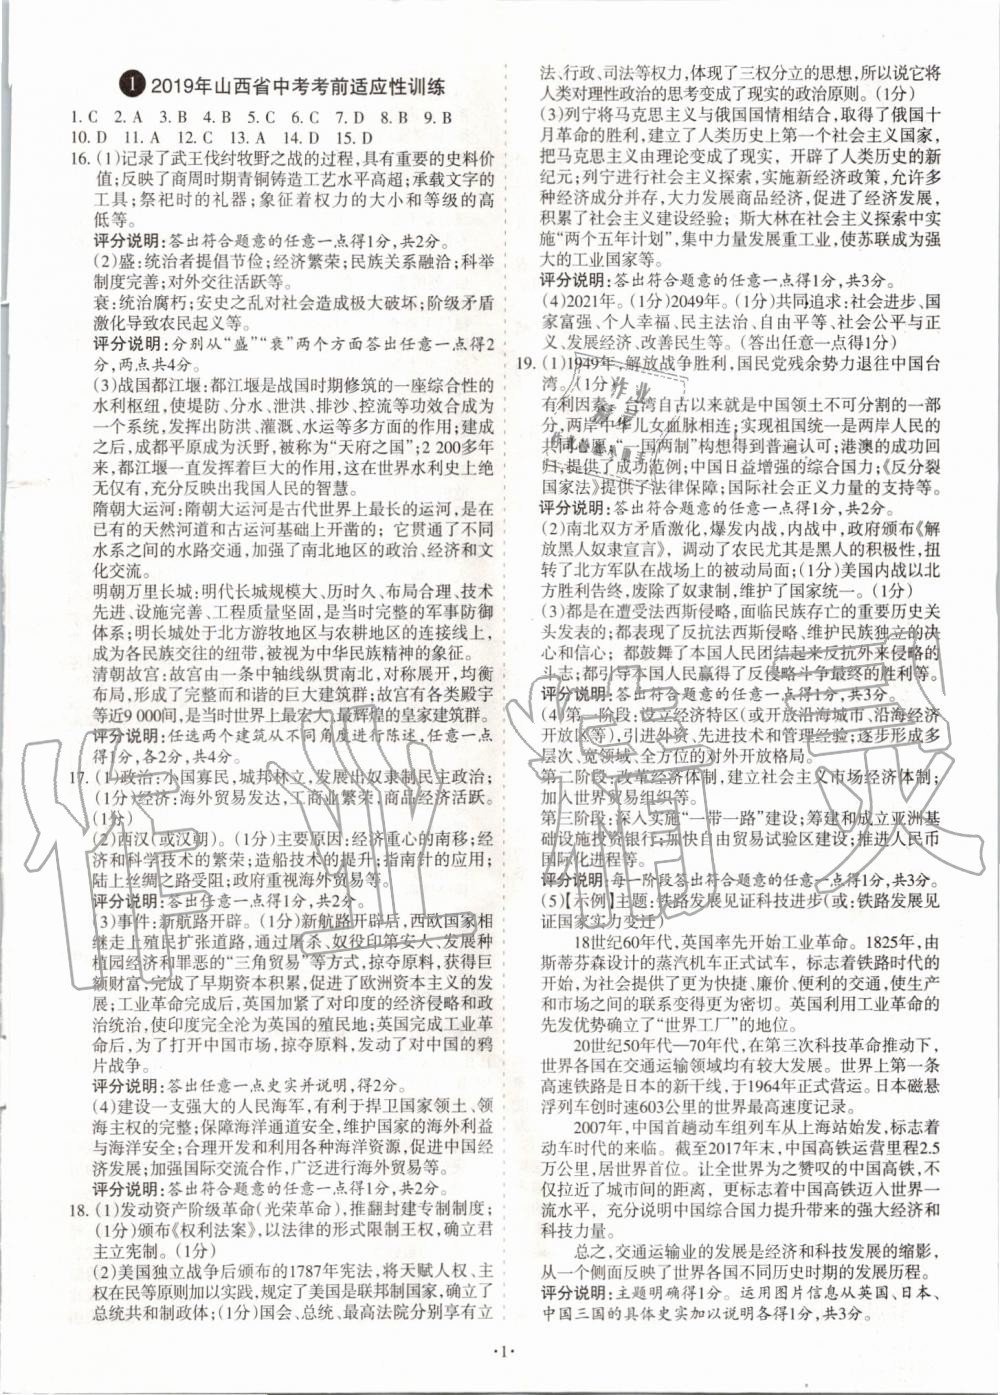 1 2019年山西省中考考前适应性训练
1. C 2. A 3. B 4. B 5. C 6. C 7. D 8. B 9. B
10. D 11. A 12. C 13. A 14. D 15. D
16. (1)记录了武王伐纣牧野之战的过程,具有重要的史料价
值;反映了商周时期青铜铸造工艺水平高超;承载文字的
工具;祭祀时的礼器;象征着权力的大小和等级的高
低等。
评分说明:答出符合题意的任意一点得1分,共2分。
(2)盛:统治者提倡节俭;经济繁荣;民族关系融洽;科举
制度完善;对外交往活跃等。
衰:统治腐朽;安史之乱对社会造成极大破坏;阶级矛盾
激化导致农民起义等。
评分说明:分别从“盛”“衰”两个方面答出任意一点得2
分,两点共4分。
(3)战国都江堰:都江堰是战国时期修筑的一座综合性的
水利枢纽,使堤防、分水、泄洪、排沙、控流等功效合成为
一个系统,发挥出防洪、灌溉、水运等多方面的作用;建成
之后,成都平原成为沃野,被称为“天府之国”;2 200多年
来,都江堰一直发挥着巨大的作用,这在世界水利史上绝
无仅有,充分反映出我国人民的智慧。
隋朝大运河:隋朝大运河是古代世界上最长的运河,是在
已有的天然河道和古运河基础上开凿的;它贯通了不同
水系之间的水路交通,加强了南北地区的政治、经济和文
化交流。
明朝万里长城:明代长城规模大、历时久、布局合理、技术
先进、设施完善、工程质量坚固,是当时完整的军事防御
体系;明长城处于北方游牧地区与农耕地区的连接线上,
成为各民族交往的纽带,被视为中华民族精神的象征。
清朝故宫:故宫由一条中轴线纵贯南北,对称展开,均衡
布局,形成了完整而和谐的巨大建筑群;故宫有各类殿宇
等近9 000间,是当时世界上最宏大、最辉煌的皇家建筑群。
评分说明:任选两个建筑从不同角度进行陈述,任意一点
得1分,各2分,共4分。
17. (1)政治:小国寡民,城邦林立,发展出奴隶制民主政治;
(1分)经济:海外贸易发达,工商业繁荣,商品经济活跃。
(1分)
(2)西汉(或汉朝)。(1分)主要原因:经济重心的南移;经
济和科学技术的繁荣;造船技术的提升;指南针的应用;
陆上丝绸之路受阻;政府重视海外贸易等。
评分说明:答出任意一点得1分,共2分。
(3)事件:新航路开辟。(1分)新航路开辟后,西欧国家相
继走上殖民扩张道路,通过屠杀、奴役印第安人、发展种
植园经济和罪恶的“三角贸易”等方式,掠夺原料,获得巨
额财富;完成了早期资本积累,促进了欧洲资本主义的发
展;工业革命完成后,英国加紧了对印度的经济侵略和政
治统治,使印度完全沦为英国的殖民地;英国完成工业革
命后,为了打开中国市场,掠夺原料,发动了对中国的鸦
片战争。
评分说明:答出任意一点史实并说明,得2分。
(4)建设一支强大的人民海军,有利于捍卫国家领土、领
海主权的完整;保障海洋通道安全;维护国家的海外利益
与海洋安全;合理开发和利用海洋资源,促进中国经济
发展;加强国际交流合作,广泛进行海外贸易等。
评分说明:答出符合题意的任意一点得1分,共2分。
18. (1)发动资产阶级革命(光荣革命),推翻封建专制制度;
(1分)颁布《权利法案》,以法律的形式限制王权,确立君
主立宪制。(1分)
(2)美国独立战争后颁布的1787年宪法,将天赋人权、主权
在民等原则加以实践,规定了美国是联邦制国家,确立了
总统共和制政体;(1分)国会、总统、最高法院分别享有立
法、行政、司法等权力,体现了三权分立的思想,所以说它将
人类对理性政治的思考变成了现实的政治原则。(1分)
(3)列宁将马克思主义与俄国国情相结合,取得了俄国十
月革命的胜利,建立了人类历史上第一个社会主义国家,
把马克思主义由理论变成了现实,开辟了人类历史的新
纪元;列宁进行社会主义探索,实施新经济政策,允许多
种经济成分并存,大力发展商品经济,促进了经济发展,
积累了社会主义建设经验;斯大林在社会主义探索中实
施“两个五年计划”,集中力量发展重工业,使苏联成为强
大的工业国家等。
评分说明:答出符合题意的任意一点得1分,共3分。
(4)2021年。(1分)2049年。(1分)共同追求:社会进步、国
家富强、个人幸福、民主法治、自由平等、社会公平与正
义、发展经济、改善民生等。(答出任意一点得1分)
19. (1)1949年,解放战争胜利,国民党残余势力退往中国台
湾。(1分)
有利因素:台湾自古以来就是中国领土不可分割的一部
分,两岸中华儿女血脉相连;实现祖国统一是两岸人民的
共同普愿,“一国两制”构想得到普遍认可;港澳的成功回
归,提供了成功范例;中国日益增强的综合国力;《反分裂
国家法》提供了法律保障;国际社会正义力量的支持等。
评分说明:答出符合题意的任意一点得1分,共2分。
(2)南北双方矛盾激化,爆发内战,内战中,政府颁布《解
放黑人奴隶宣言》,调动了农民尤其是黑人的积极性,扭
转了北方军队在战场上的被动局面;(1分)美国内战以北
方胜利告终,废除了奴隶制,维护了国家统一。(1分)
(3)都是在遭受法西斯侵略,面临民族存亡的重要历史关
头发表的;都表现了反抗法西斯侵略、维护民族独立的决
心和信心;都鼓舞了本国人民团结起来反抗外来侵略的
斗志;都引导本国人民赢得了反侵略斗争最终的胜利等。
评分说明:答出符合题意的任意一点得1分,共3分。
(4)第一阶段:设立经济特区(或开放沿海城市、沿海经济
开放区等),引进外资、先进技术和管理经验;逐步形成多
层次、宽领域、全方位的对外开放格局。
第二阶段:改革经济体制,建立社会主义市场经济体制;
加入世界贸易组织等。
第三阶段:深入实施“一带一路”建设;筹建和成立亚洲基
础设施投资银行;加快自由贸易试验区建设;推进人民币
国际化进程等。
评分说明:每一阶段答出符合题意的任意一点得1分,共3分。
(5)[示例]主题:铁路发展见证科技进步(或:铁路发展见
证国家实力变迁)
18世纪60年代,英国率先开始工业革命。1825年,由
斯蒂芬森设计的蒸汽机车正式试车,标志着铁路时代的开
始,为社会提供了更为快捷、廉价、便利的交通,使生产
和市场之间的联系变得更为密切。英国利用工业革命的
先发优势确立了“世界工厂”的地位。
20世纪50年代—70年代,在第三次科技革命推动下,
世界各国在交通运输领域均有较大发展。世界上第一条
高速铁路是日本的新干线,于1964年正式营运。日本磁悬
浮列车创时速603公里的世界最高速度记录。
2007年,中国首趟动车组列车从上海站始发,标志着
动车时代的来临。截至2017年末,中国高铁运营里程2.5
万公里,居世界首位。让全世界为之赞叹的中国高铁,不
仅拉近了城市间的距离,更标志着中国高铁迈入世界一
流水平,充分说明中国综合国力提升带来的强大经济和
科技力量。
总之,交通运输业的发展是经济和科技发展的缩影,
从一个侧面反映了世界各国不同历史时期的发展历程。
评分说明:主题明确得1分。运用图片信息从英国、日本、
中国三国的具体史实加以说明各得1分,共3分。
·1·
作业精灵